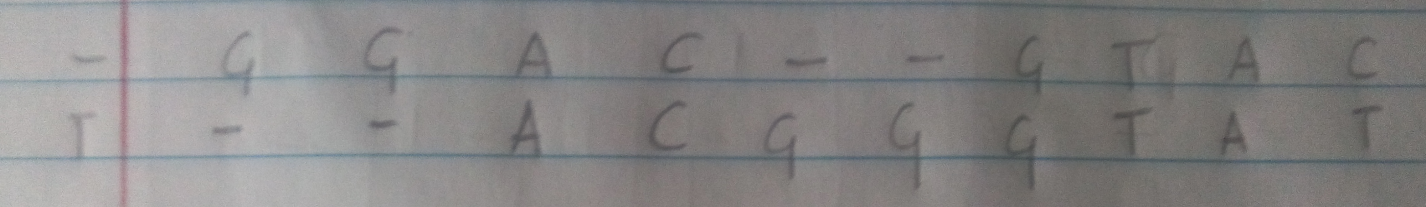 - G G A C - - G T A C
T - - A C G G G T A T